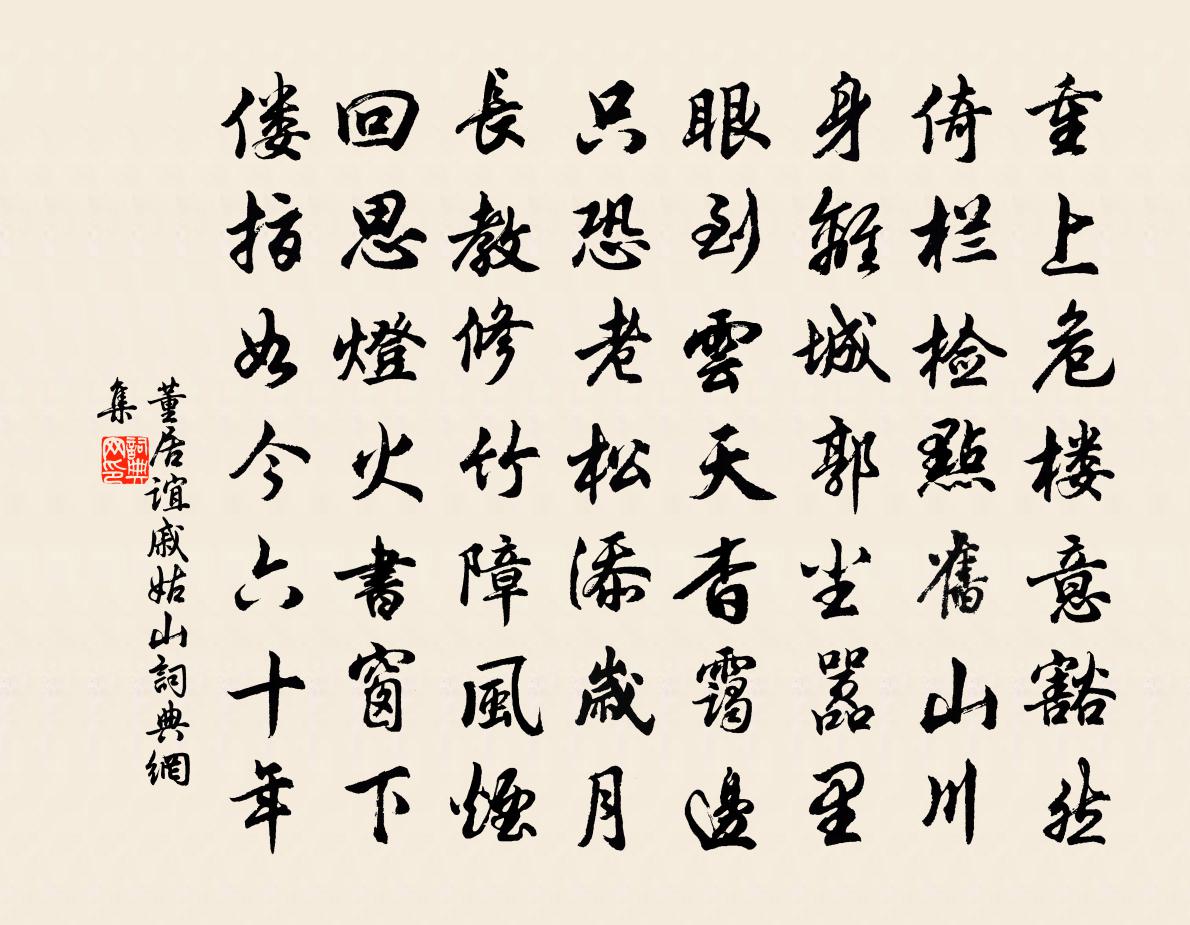 重上危楼意豁然
倚栏检點舊山川
身離城郭尘嚣里
眼到雲天杳靄邊
只恐老松添歲月
長教修竹障風煙
回思燈火書窗下
偻指如今六十年
董居誼戚姑山詞典網
集
詞典網印